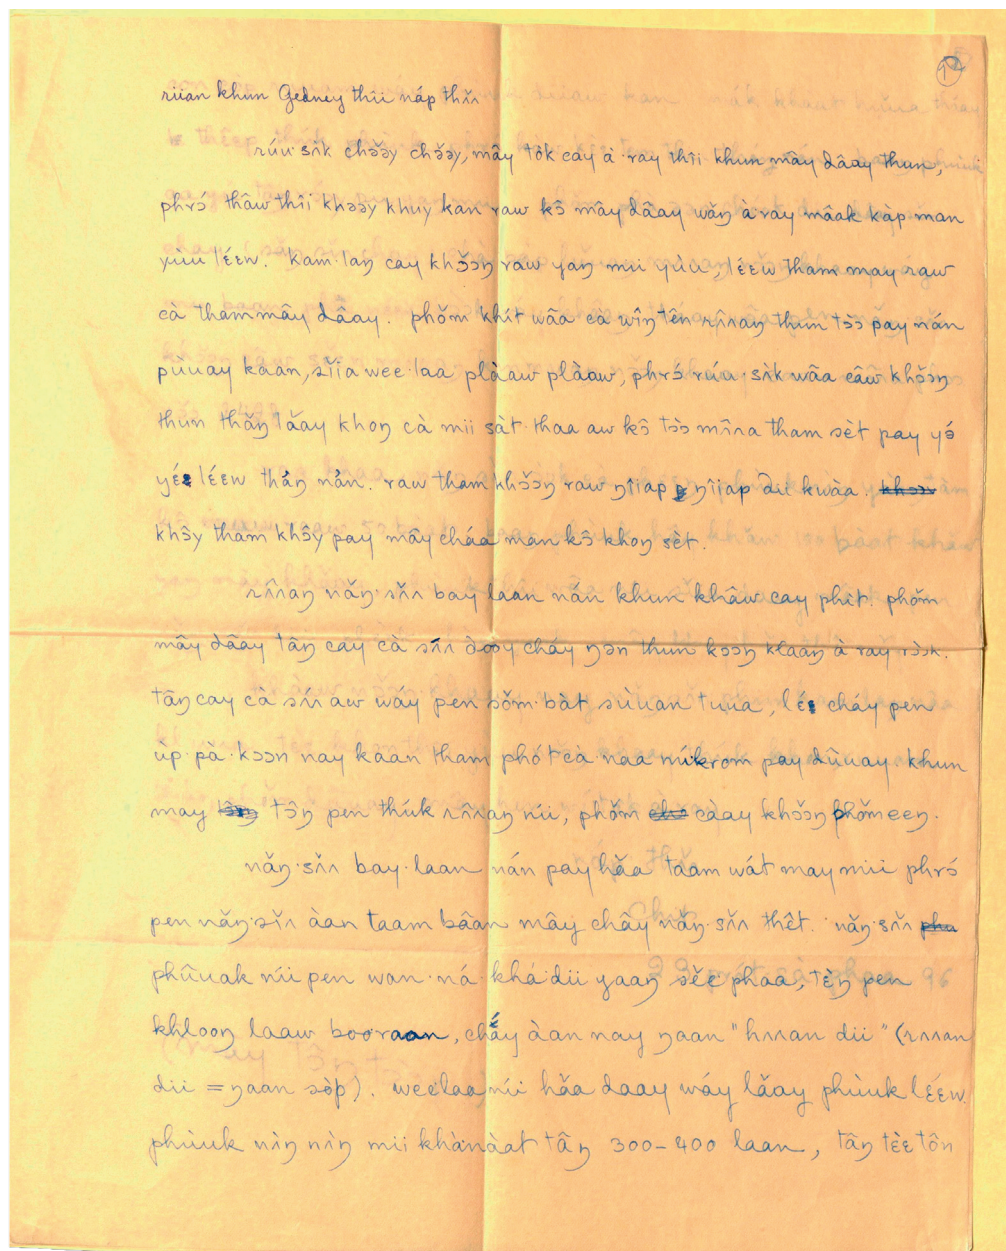 14
riian khun Gedney thîi náp thʌ̌ʌ
rúu·sʌ̀k chə̌əy chə̌əy, mây tòk cay à·ray thîi khun mây dâay thun,
phrɔ́ thâw thîi khəəy khuy kan raw kɔ̂ mây dâay wǎŋ à·ray mâak kàp man
yùu lɛ́ɛw. kam·laŋ cay khɔ̌ɔŋ raw yaŋ mii yùu, lɛ́ɛw tham may raw
cà tham mây dâay. phǒm khít wâa cà wîŋ tên rʌ̂ʌaŋ thun tɔ̀ɔ pay nán
pùuay kaan, sǐia wee·laa plàaw plàaw, phrɔ́ rúu·sʌ̀k wâa câw khɔ̌ɔŋ
thun thǎŋ lǎay khoŋ cà mii sàt·thaa aw kɔ̂ tɔ̀ɔ mʌ̂ʌa tham sèt pay yə́
yɛ́ lɛ́ɛw tháŋ nán. raw tham khɔ̌ɔŋ raw ŋîiap ŋîiap dii kwàa.
khɔ̂y tham khɔ̂y pay mây cháa man kɔ̂ khoŋ sèt.
rʌ̂ʌaŋ nǎŋ·sʌ̌ʌ bay laan nán khun khâw cay phìt. phǒm
mây dâay tâŋ cay cà sʌ́ʌ dooy cháy ŋən thun kɔɔŋ klaaŋ à·ray rɔ̀ɔk.
tâŋ cay cà sʌ́ʌ aw wáy pen sǒm·bàt sùuan tuua, lɛ́ cháy pen
ùp·pà·kɔɔn nay kaan tham phót·cà·naa·nú·krom pay dûuay khun
may tɔ̂ŋ pen thúk rʌ̂ʌaŋ níi, phǒm càay khɔ̌ɔŋ phǒm eeŋ.
nǎŋ·sʌ̌ʌ bay·laan nán pay hǎa taam wát may mii phrɔ́
pen nǎŋ·sʌ̌ʌ àan taam bâan mây chây nǎŋ·sʌ̌ʌ thêt. nǎŋ·sʌ̌ʌ
phûuak níi pen wan·ná·khá·dii yaaŋ sɛ̌ɛ phaa, tɛ̀ŋ pen
khlooŋ laaw booraan, cháy àan nay ŋaan "hʌʌan dii" (rʌʌan
dii = ŋaan sòp). weelaa níi hǎa daay wáy lǎay phùuk lɛ́ɛw
phùuk nʌ̀ŋ nʌ̀ŋ mii khànàat tâŋ 300-400 laan, tâŋ tɛ̀ɛ tôn